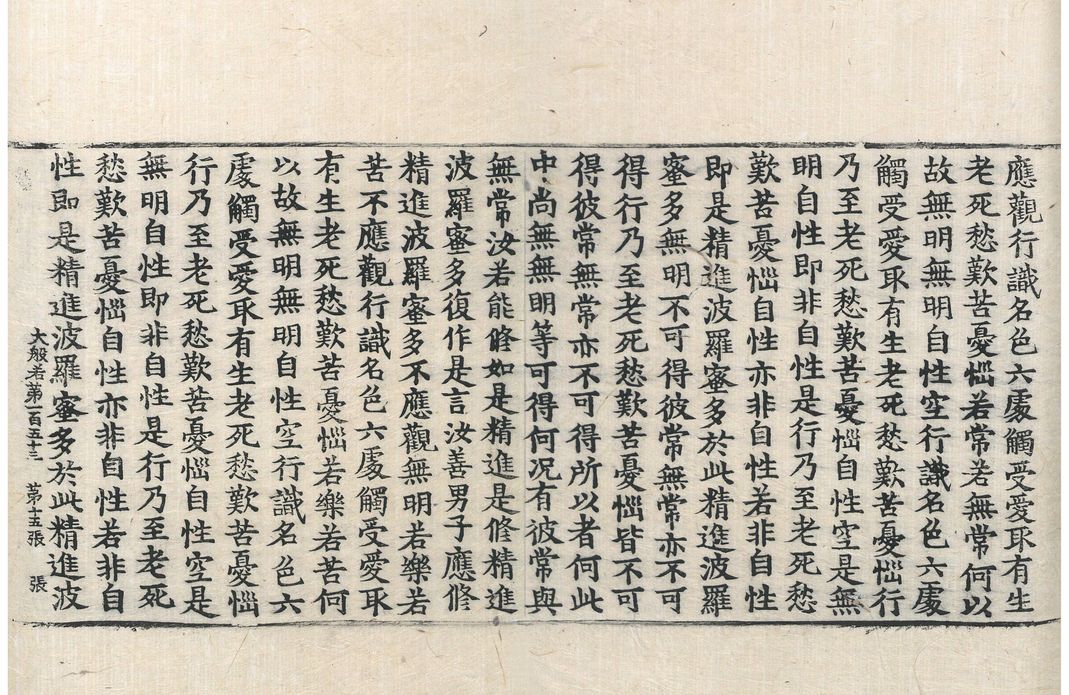 應觀行識名色六處觸受愛取有生
老死愁歎苦憂惱若常若無常何以
故無明無明自性空行識名色六處
觸受愛取有生老死愁歎苦憂惱行
乃至老死愁歎苦憂惱自性空是無
明自性即非自性是行乃至老死愁
歎苦憂惱自性亦非自性若非自性
即是精進波羅蜜多於此精進波羅
蜜多無明不可得彼常無常亦不可
得行乃至老死愁歎苦憂惱皆不可
得彼常無常亦不可得所以者何此
中尚無無明等可得何況有彼常與
無常汝若能修如是精進是修精進
波羅蜜多復作是言汝善男子應修
精進波羅蜜多不應觀無明若樂若
苦不應觀行識名色六處觸受愛取
有生老死愁歎苦憂惱若樂若苦何
以故無明無明自性空行識名色六
處觸受愛取有生老死愁歎苦憂惱
行乃至老死愁歎苦憂惱自性空是
無明自性即非自性是行乃至老死
愁歎苦憂惱自性亦非自性若非自
性即是精進波羅蜜多於此精進波
大般若第一百五十三 第十五張 張